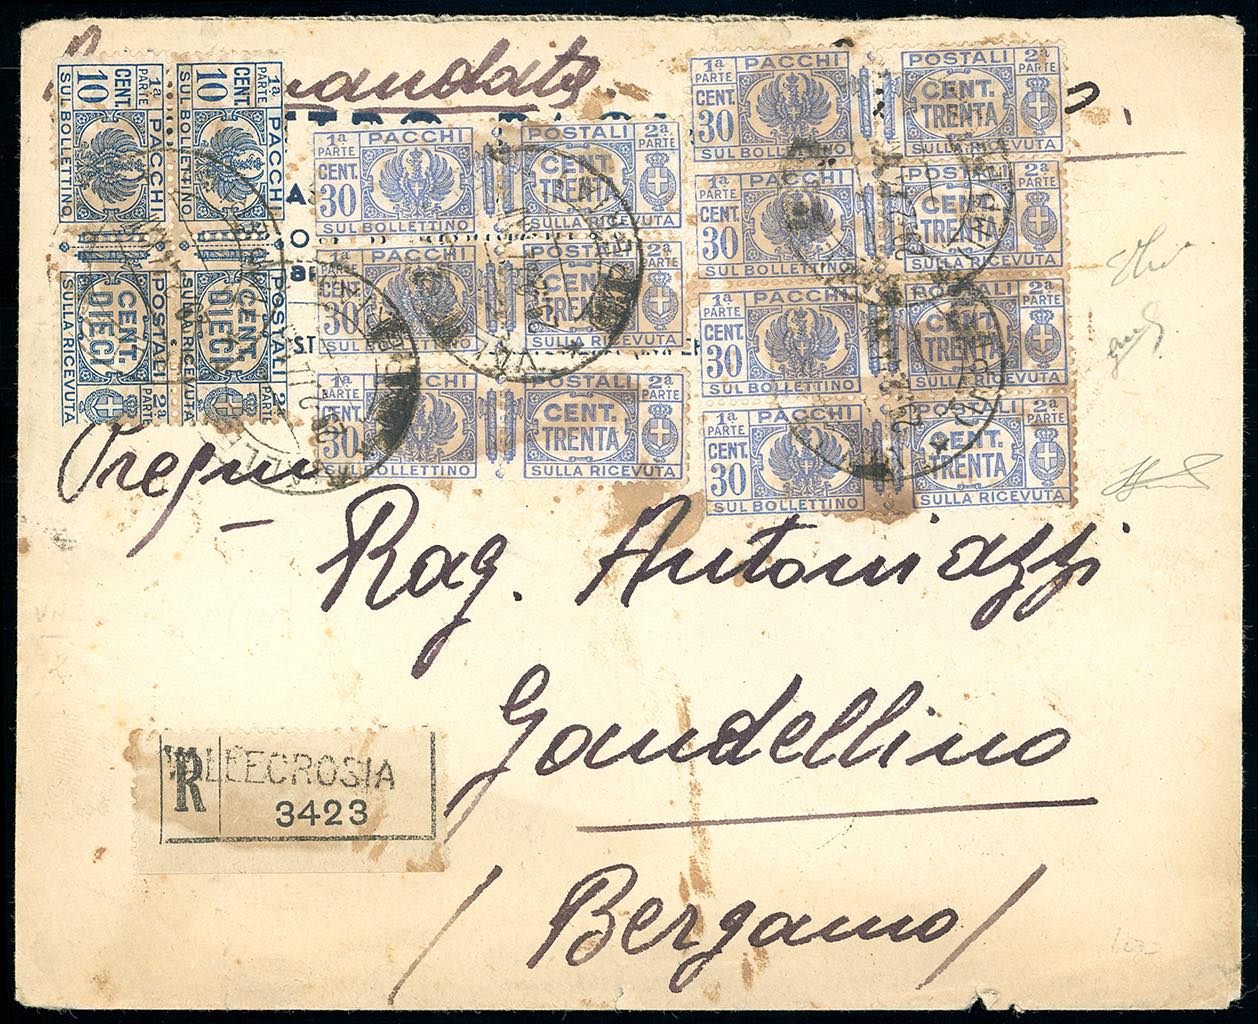 1ª PARTE PACCHI
CENT. 10
SUL BOLLETTINO
POSTALI 2ª
CENT. DIECI
SULLA RICEVUTA
1ª PARTE PACCHI
CENT. 10
SUL BOLLETTINO
POSTALI 2ª
CENT. DIECI
SULLA RICEVUTA
1ª PARTE PACCHI
CENT. 30
SUL BOLLETTINO
POSTALI 2ª PARTE
CENT. TRENTA
SULLA RICEVUTA
CENT. 30
SUL BOLLETTINO
POSTALI 2ª PARTE
CENT. TRENTA
SULLA RICEVUTA
1ª PARTE PACCHI
CENT. 30
SUL BOLLETTINO
POSTALI 2ª PARTE
CENT. TRENTA
SULLA RICEVUTA
1ª PARTE PACCHI
CENT. 30
SUL BOLLETTINO
POSTALI 2ª PARTE
CENT. TRENTA
1ª PARTE PACCHI
CENT. 30
SUL BOLLETTINO
POSTALI 2ª PARTE
CENT. TRENTA
SULLA RICEVUTA
1ª PARTE PACCHI
CENT. 30
SUL BOLLETTINO
POSTALI 2ª PARTE
CENT. TRENTA
SULLA RICEVUTA
1ª PARTE PACCHI
CENT. 30
SUL BOLLETTINO
POSTALI 2ª PARTE
CENT. TRENTA
SULLA RICEVUTA
Rag. Antoniazzi
Gandellino
/Bergamo/
R VALLECROSIA
3423